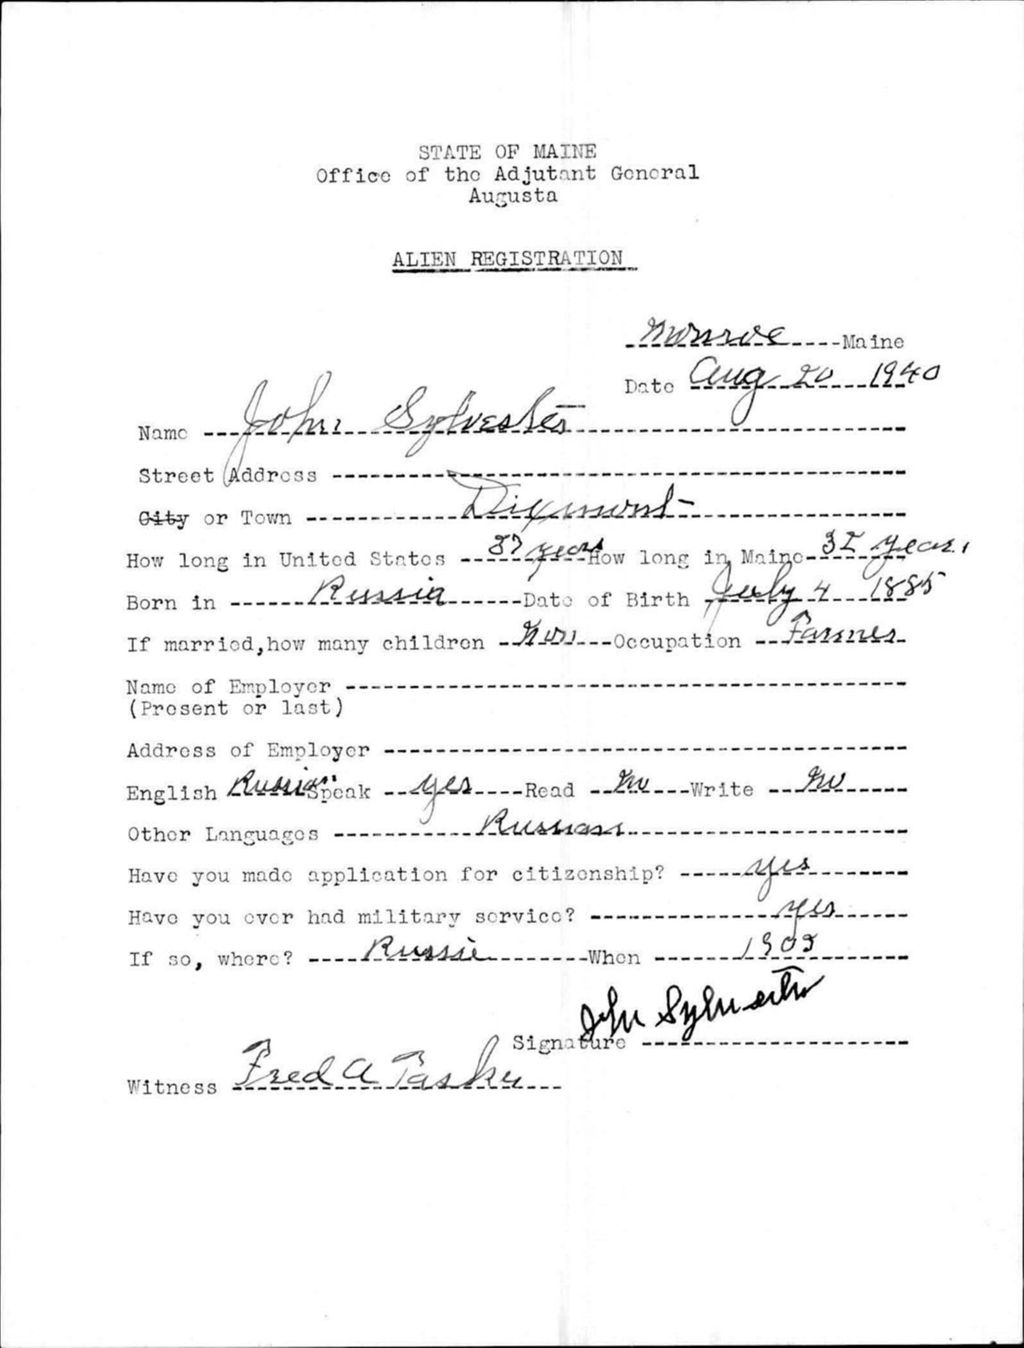 STATE OF MAINE
Office of the Adjutant General
Augusta
ALIEN REGISTRATION
Monroe Maine
Date Aug 20 1940
Name John Sylvester
Street Address
City or Town Dixmont
How long in United States 37 years How long in Maine years
Born in Russia Date of Birth July 4 1885
If married, how many children Occupation Farmer
Name of Employer
(Present or last)
Address of Employer
English Russian Speak yes Read No Write No
Other Languages Russian
Have you made application for citizenship? yes
Have you ever had military service? yes
If so, where? Russia When 1905
Signature John Sylvester
Witness Fred A Tasker